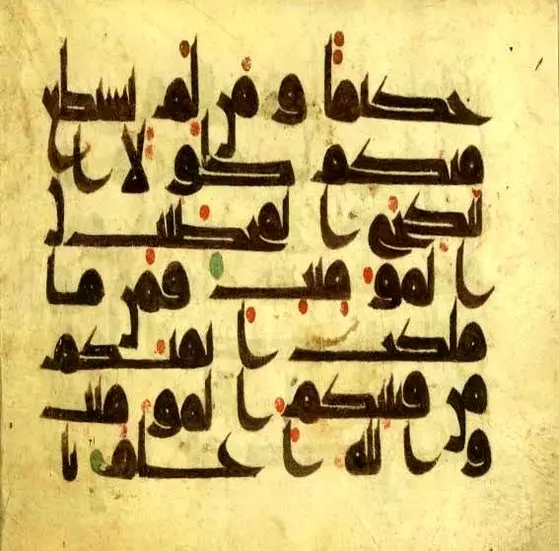 حكيما ومن لم يستطع
منكم طولا ان
ينكح المحصنت
المومنت فمن ما
ملكت ايمنكم
من فتيتكم المومنت
والله اعلم با